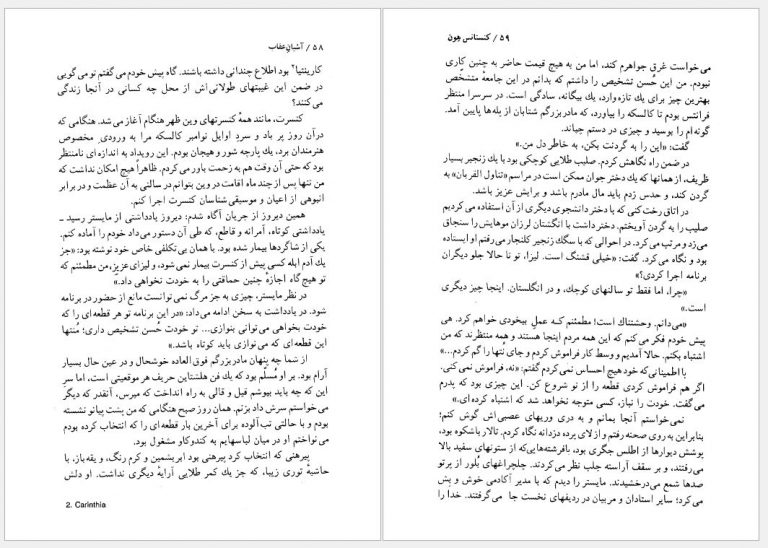 ۵۸ / آشیان عقاب
کارینتیا۲ بود اطلاع چندانی داشته باشند. گاه پیش خودم می گفتم تو می گویی
در ضمن این غیبتهای طولانی‌اش از محل چه کسانی در آنجا زندگی
می‌کنند؟
کنسرت، مانند همۀ کنسرتهای وین ظهر هنگام آغاز می‌شد. هنگامی که
درآن روز پر باد و سرد اوایل نوامبر کالسکه مرا به ورودی مخصوص
هنرمندان برد، یك پارچه شور و هیجان بودم. این رویداد به اندازه‌ای نامنتظر
بود که حتی آن وقت هم به زحمت باور می‌کردم. ظاهراً هیچ امکان نداشت که
من تنها پس از چند ماه اقامت در وین بتوانم در سالنی به آن عظمت و در برابر
انبوهی از اعیان و موسیقی شناسان کنسرت اجرا کنم.
همین دیروز از جریان آگاه شدم؛ دیروز یادداشتی از مایستر رسید ــ
یادداشتی کوتاه، آمرانه و قاطع، که طی آن دستور می‌داد خودم را آماده کنم.
یکی از شاگردها بیمار شده بود. با همان بی‌تکلفی خاص خود نوشته بود: «جز
یك آدم ابله کسی پیش از کنسرت بیمار نمی‌شود، و لیزای عزیزِ من، مطمئنم که
تو هیچ گاه اجازۀ چنین حماقتی را به خودت نخواهی داد.»
در نظر مایستر، چیزی به جز مرگ نمی توانست مانع از حضور در برنامه
شود. در یادداشت به سخن ادامه می‌داد: «در این برنامه تو هر قطعه‌ای را که
خودت بخواهی می‌توانی بنوازی... تو خودت حُسن تشخیص داری؛ مُنتها
این قطعه‌ای که می‌نوازی باید کوتاه باشد.»
از شما چه پنهان مادربزرگم فوق العاده خوشحال و در عین حال بسیار
آرام بود. بر او مُسلّم بود که یك فن هلشتاین حریف هر موقعیتی است، اما سر
این که چه باید بپوشم قیل و قالی به راه انداخت که میرس، آنقدر که دیگر
می‌خواستم سرش داد بزنم. همان روز صبح هنگامی که من پشت پیانو نشسته
بودم و با حالتی تب آلوده برای آخرین بار قطعه‌ای را که انتخاب کرده بودم
می‌نواختم او در میان لباسهایم به کندوکاو مشغول بود.
پیرهنی که انتخاب کرد پیرهنی بود ابریشمین و کرم رنگ، و یقه‌باز، با
حاشیۀ توری زیبا، که جز یك کمر طلایی آرایۀ دیگری نداشت. او دلش
2. Carinthia
۵۹ / کنستانس هِون
می‌خواست غرق جواهرم کند، اما من به هیچ قیمت حاضر به چنین کاری
نبودم. من این حُسن تشخیص را داشتم که بدانم در این جامعۀ متشخّص
بهترین چیز برای یك تازه‌وارد، یك بیگانه، سادگی است. در سرسرا منتظر
فرانتس بودم تا کالسکه را بیاورد، که مادربزرگم شتابان از پله‌ها پایین آمد.
گونه‌ام را بوسید و چیزی در دستم چپاند.
گفت: «این را به گردنت بکن، به خاطر دل من.»
در ضمن راه نگاهش کردم. صلیب طلایی کوچکی بود با یك زنجیر بسیار
ظریف، از همانها که یك دختر جوان ممکن است در مراسم «تناول القربان» به
گردن کند، و حدس زدم باید مال مادرم باشد و برایش عزیز باشد.
در اتاق رخت کنی که با دختر دانشجوی دیگری از آن استفاده می‌کردیم
صلیب را به گردن آویختم. دختر داشت با انگشتان لرزان موهایش را سنجاق
می‌زد و مرتب می‌کرد. در احوالی که با سگك زنجیر کلنجار می‌رفتم او ایستاده
بود و نگاه می‌کرد. گفت: «خیلی قشنگ است. لیزا، تو تا حالا جلو دیگران
برنامه اجرا کردی؟»
«چرا، اما فقط تو سالنهای کوچك، و در انگلستان. اینجا چیز دیگری
است.»
«می‌دانم. وحشتناك است! مطمئنم کـه عملِ بیخودی خواهم کرد. هی
پیش خودم فکر می‌کنم که این همه مردم اینجا هستند و همه منتظرند که من
اشتباه بکنم. حالا آمدیم و وسط کار فراموش کردم و جای نُتها را گم کردم...»
با اطمینانی‌که خود هیچ احساس نمی‌کردم گفتم: «نه، فراموش نمی‌کنی.
اگر هم فراموش کردی قطعه را از نو شروع کن. این چیزی بود که پدرم
می‌گفت. خودت را نباز، کسی متوجه نخواهد شد که اشتباه کرده‌ای.»
نمی‌خواستم آنجا بمانم و به دری وریهای عصبی‌اش گوش کنم؛
بنابراین به روی صحنه رفتم و از لای پرده دزدانه نگاه کردم. تالار باشکوه بود،
پوشش دیوارها از اطلس جگری بود، با فرشته‌هایی‌که از ستونهای سفید بالا
می‌رفتند، و بر سقف آراسته جلب نظر می‌کردند. چلچراغهای بلور از پرتو
صدها شمع می‌درخشیدند. مایستر را دیدم که با مدیر آکادمی خوش و بش
می‌کرد؛ سایر استادان و مربیان در ردیفهای نخست جا می‌گرفتند. خدا را